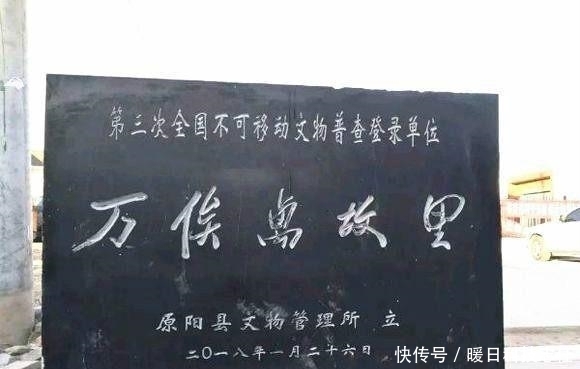 第三次全国不可移动文物普查登录单位
万俟卨故里
原阳县文物管理所 立
二〇一八年一月二十六日
快传号 / 暖日